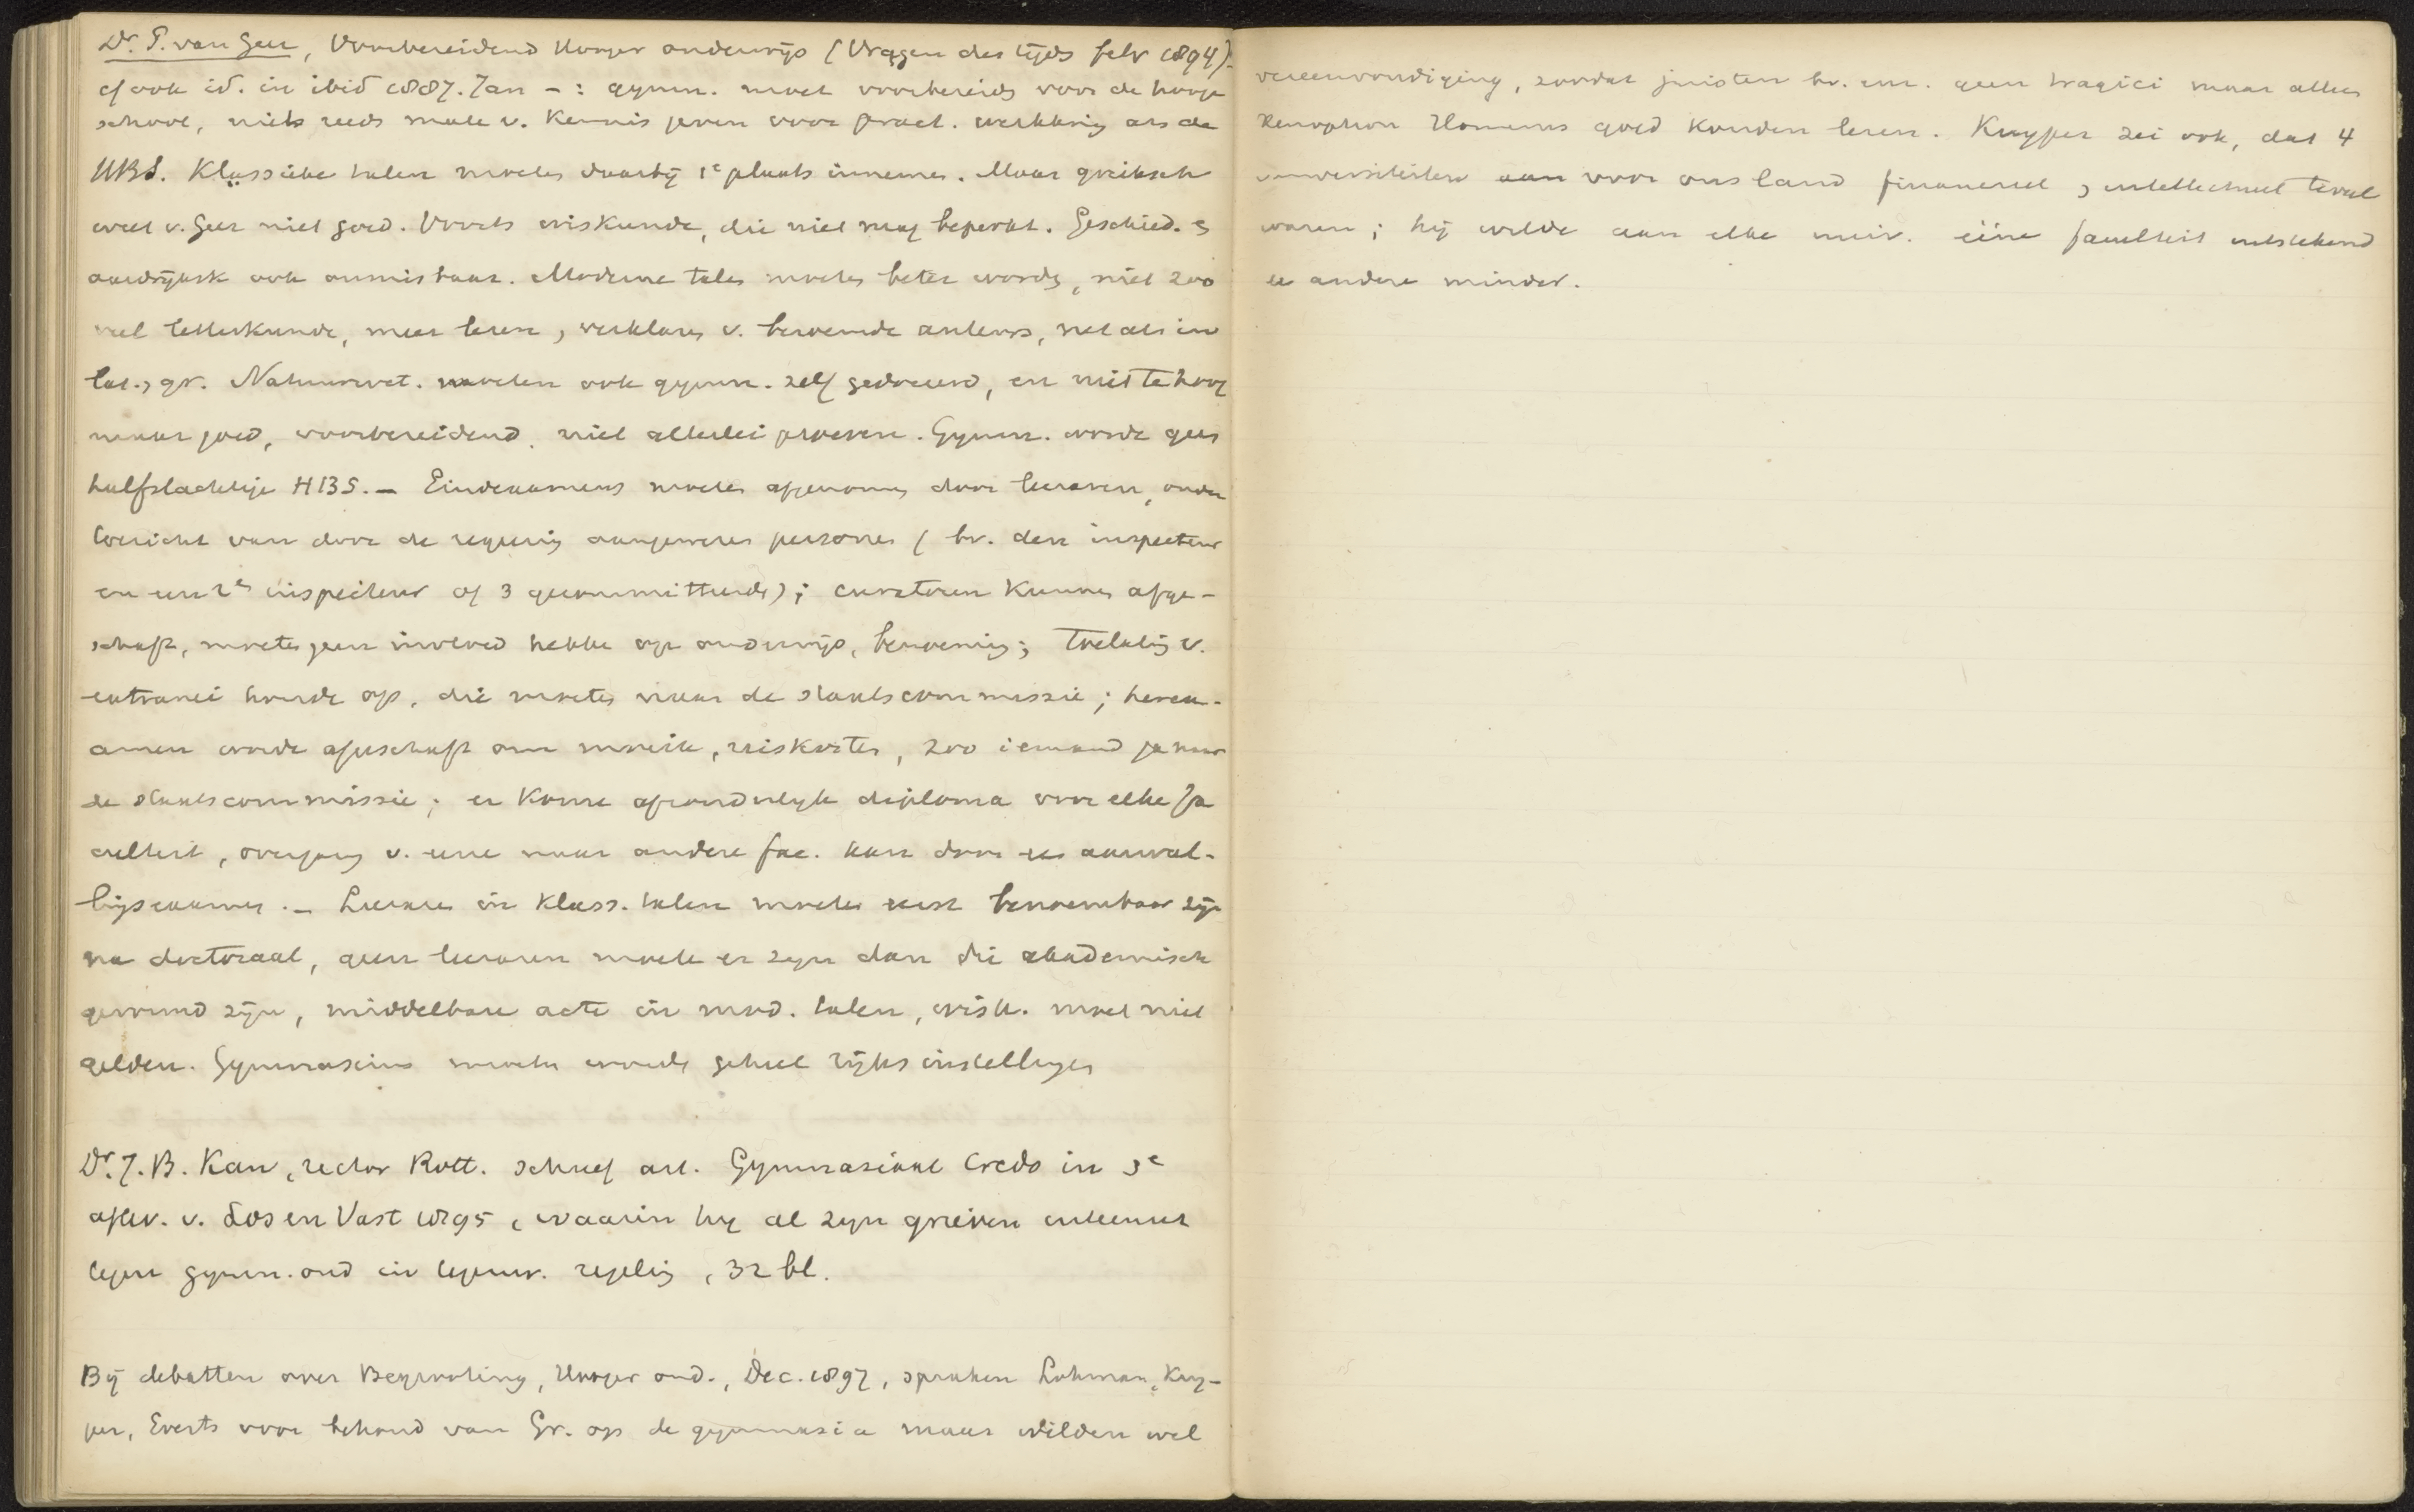 Dr. P. van Geer, Voorbereidend Hooger onderwijs (Vragen des tijds febr 1894)
cf ook id. in ibid 1887. Jan -: gymn. moet voorbereids voor de hooge
school, niets reeds mate v. kennis geven voor pract. werkkring als de
HBS. Klassieke talen moeten daarbij 1e plaats innemen. Maar grieksch
weet v. Geer niet goed. Voorts wiskunde, die niet mag beperkt. Geschied. &
aardrijksk ook onmisbaar. Moderne talen moeten beter worden, niet zoo
veel letterkunde, meer lezen, verklaren v. beroemde auteurs, net als in
lat., gr. Natuurwet. moeten ook gymn. zelf gedoceerd, en niet te hoog
maar goed, voorbereidend, niet allerlei proeven. Gymn. worde geen
halfslachtige HBS. — Eindexamens moeten afgenomen door leeraren, onder
toezicht van door de regeering aangewezen personen (bv. den inspecteur
en een 2e inspecteur of 3 gecommitteerds); curatoren kunnen afge-
schaft, moeten geen invloed hebben op onderwijs, benoeming; toelating v.
extranei houde op, die moeten naar de staatscommissie; herex-
amen worde afgeschaft om moeite, reiskosten, zoo iemand ga naar
de staatscommissie; er kome afzonderlijk diploma voor elke fa
culteit, overgang v. eene naar andere fac. kan door een aanvul-
lingsexamen. — Leeraren in klass. talen moeten eerst benoembaar zijn
na doctoraal, geen leeraren moeten er zijn dan die akademisch
gevormd zijn, middelbare acte in mod. talen, wisk. moet niet
gelden. Gymnasiums moeten worden geheel rijksinstellingen
Dr. J. B. Kan, rector Rott. schreef art. Gymnasiaal Credo in 3e
aflev. v. Los en Vast 1895, waarin hij al zijn grieven uiteenzet
tegen gymn. ond in tegenw. regeling, 32 bl.
Bij debatten over Begrooting, Hooger ond., Dec. 1897, spraken Lohman, Kuy-
per, Everts voor behoud van Gr. op de gymnasia maar wilden wel
vereenvoudiging, zoodat juristen bv. geen tragici maar alleen
Xenophon Homerus goed konden lezen. Kuyper zei ook, dat 4
universiteiten aan voor ons land financieel, intellectueel teveel
waren; hij wilde aan elke univ. eéne faculteit uitstekend
de andere minder.